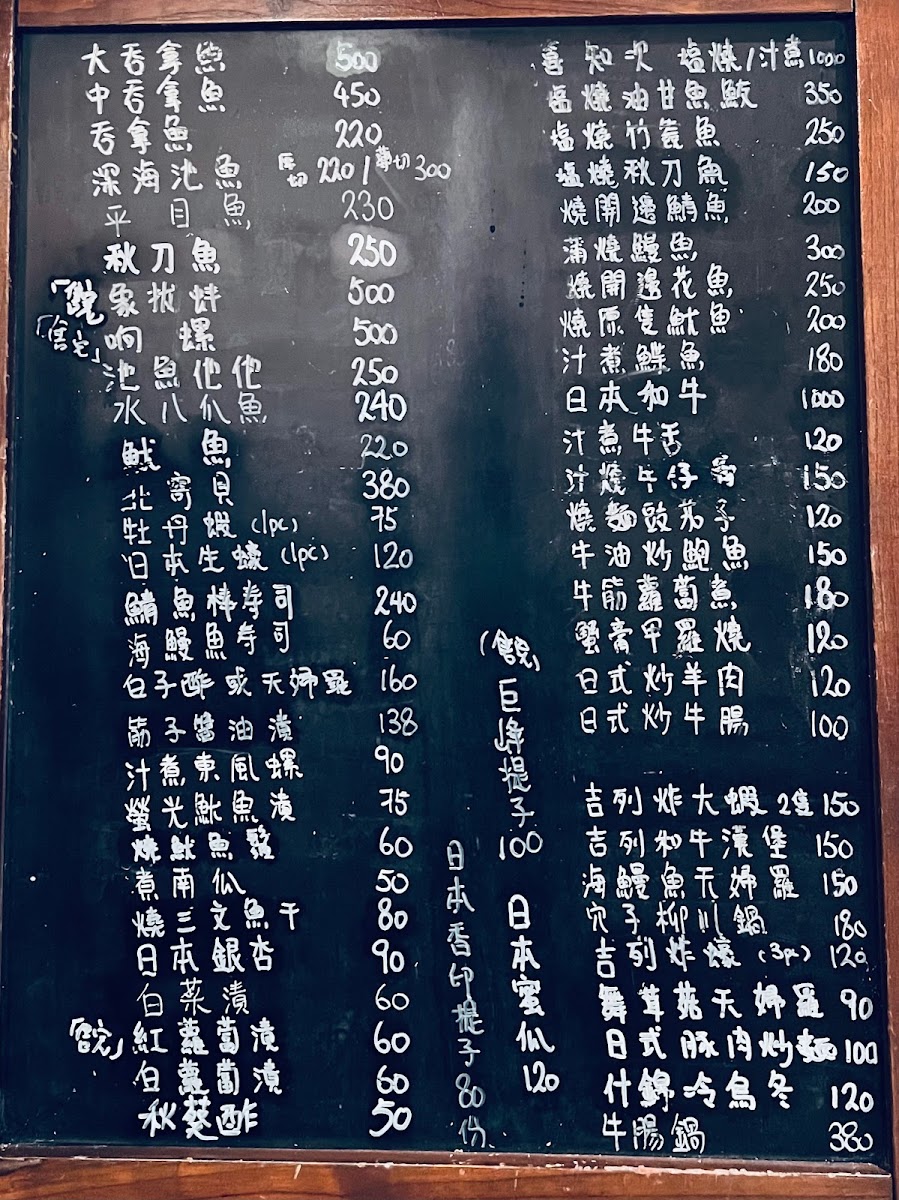 大吞拿魚 500
中吞拿魚 450
吞拿魚 220
深海池魚 厚切 220 / 薄切 300
平目魚 230
秋刀魚 250
「售完」 象拔蚌 500
「售完」 响螺 500
池魚他他 250
水八爪魚 240
魷魚 220
北寄貝 380
牡丹蝦 (1pc) 75
日本生蠔 (1pc) 120
鯖魚棒寿司 240
海鰻魚寿司 60
白子酢或天婦羅 160
筋子醬油漬 138
汁煮東風螺 90
螢光魷魚漬 75
燒魷魚鬚 60
煮南瓜 50
燒三文魚干 80
日本銀杏 90
白菜漬 60
「售完」 紅蘿蔔漬 60
白蘿蔔漬 60
秋葵酢 50
日本香印提子 80 份
(售完) 巨峰提子 100
日本蜜瓜 120
喜知次 塩燒/汁煮 1000
塩燒油甘魚鮫 350
塩燒竹簽魚 250
塩燒秋刀魚 150
燒開邊鯖魚 200
蒲燒鰻魚 300
燒開邊花魚 250
燒原隻魷魚 200
汁煮鰈魚 180
日本和牛 1000
汁煮牛舌 120
汁燒牛仔骨 150
燒麵豉茄子 120
牛油炒鮑魚 150
牛筋蘿蔔煮 180
蟹膏甲羅燒 120
日式炒羊肉 120
日式炒牛腸 100
吉列炸大蝦 2隻 150
吉列和牛漢堡 150
海鰻魚天婦羅 150
穴子柳川鍋 180
吉列炸蠔 (3pc) 120
舞茸菇天婦羅 90
日式豚肉炒麵 100
什錦冷烏冬 120
牛腸鍋 380